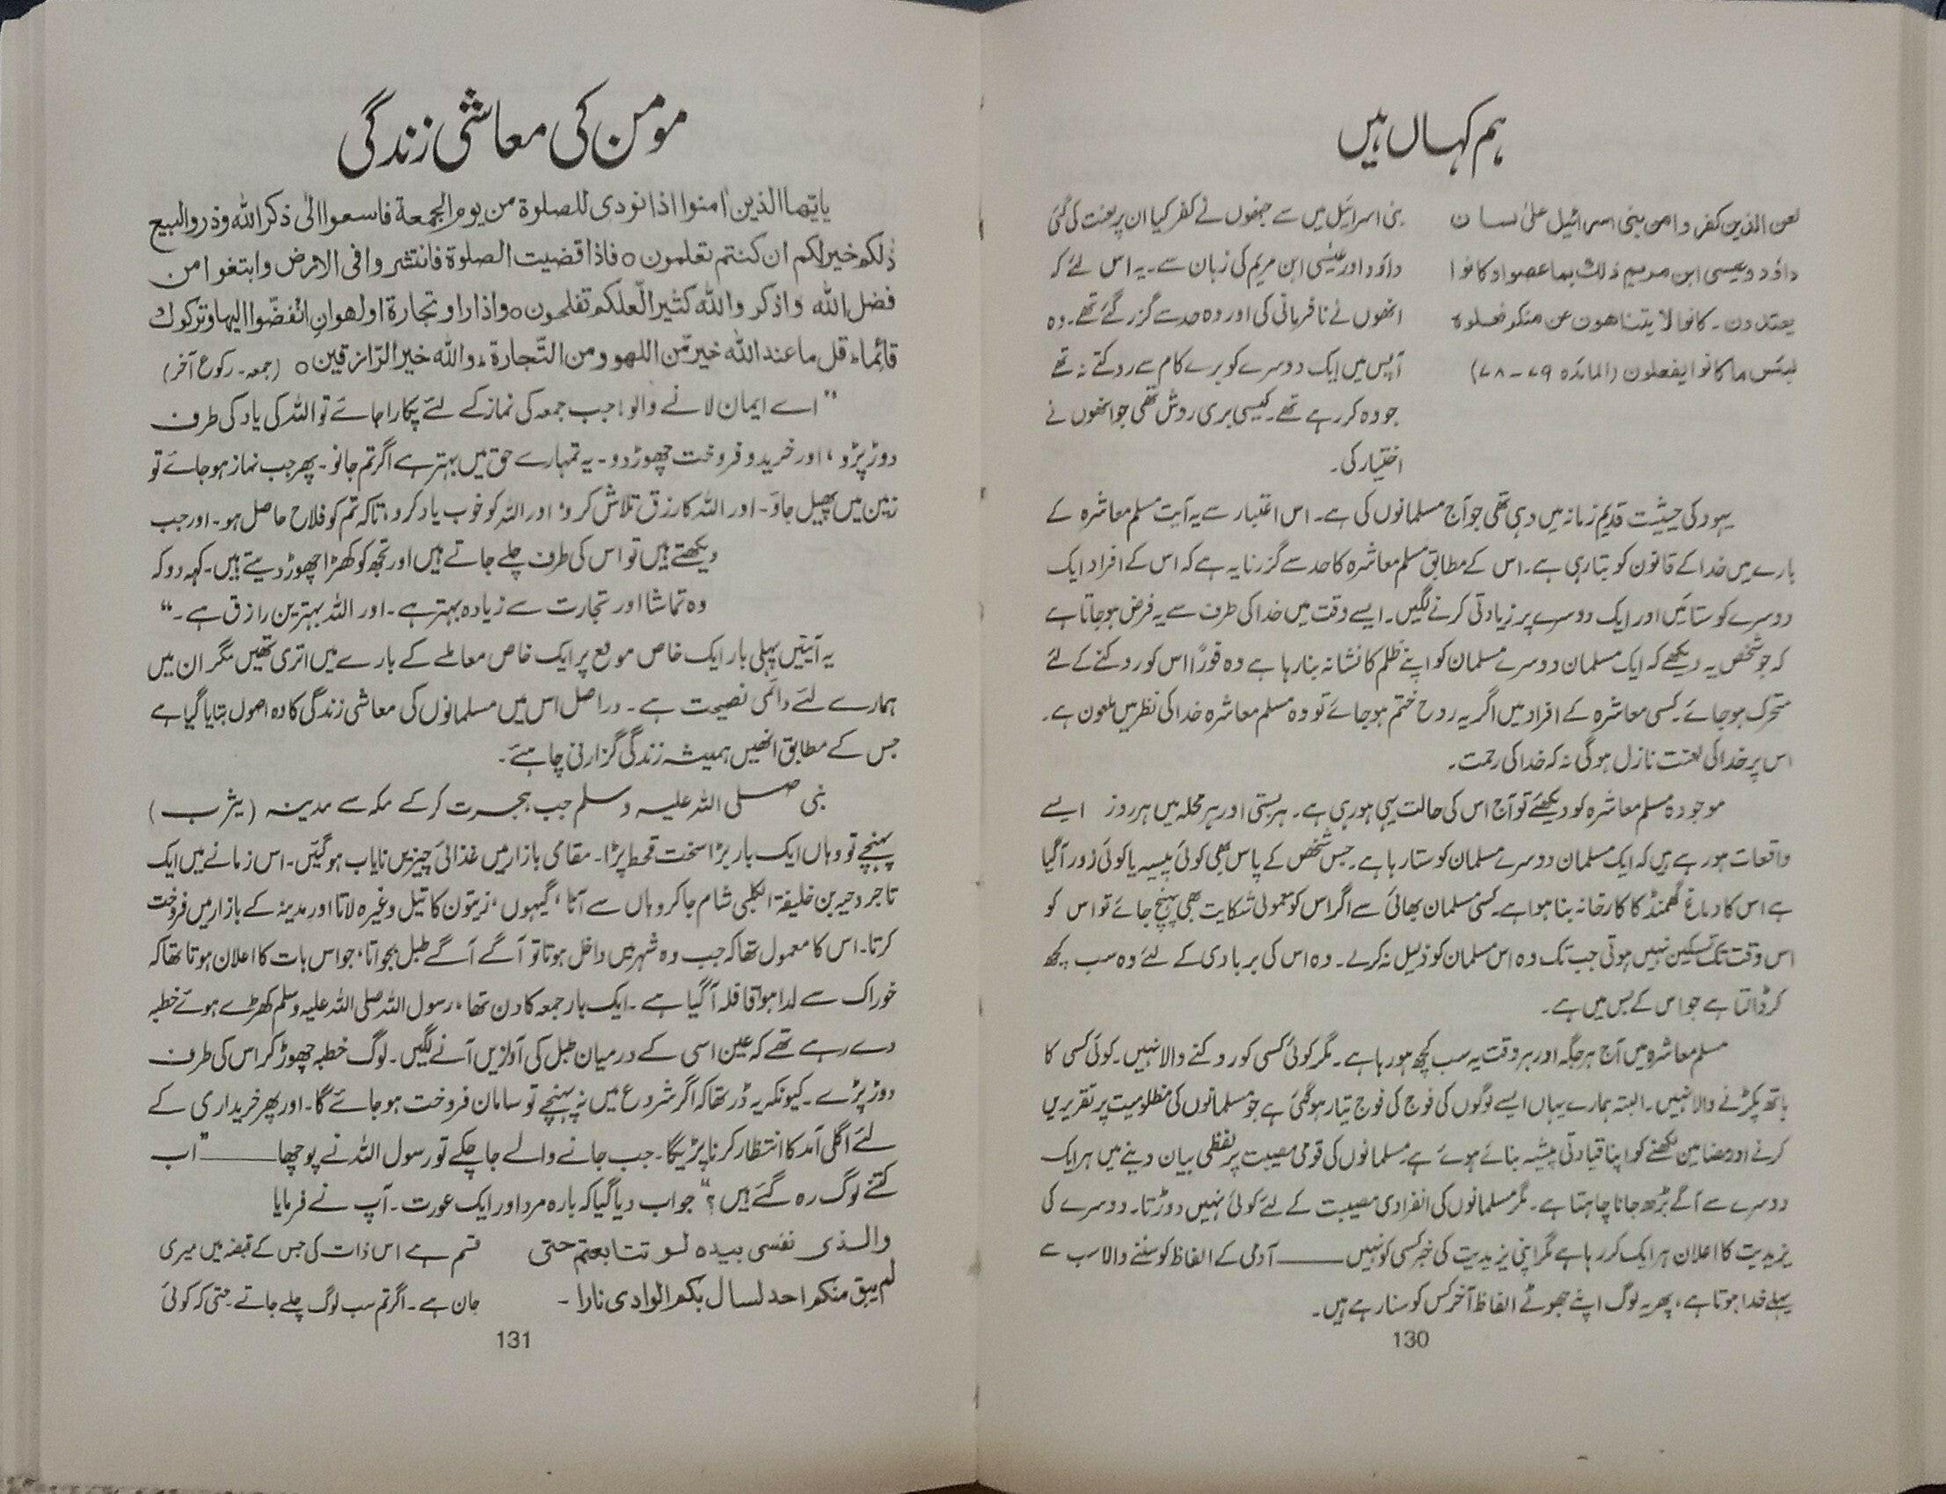 ہم کہاں ہیں
لعن الذین کفروا من بنی اسرائیل علیٰ لسان
داؤد وعیسی ابن مریم ذلک بما عصوا وکانوا
یعتدون۔ کانوا لا یتناهون عن منکر فعلوہ
لبئس ما کانوا یفعلون (المائدہ ۷۹-۷۸)
بنی اسرائیل میں سے جنھوں نے کفر کیا ان پر لعنت کی گئی
داؤد اور عیسیٰ ابن مریم کی زبان سے۔ یہ اس لئے کہ
انھوں نے نافرمانی کی اور وہ حد سے گزر گئے تھے۔ وہ
آپس میں ایک دوسرے کو برے کام سے روکتے نہ تھے
جو وہ کر رہے تھے۔ کیسی بری روش تھی جو انھوں نے
اختیار کی۔
یہود کی حیثیت قدیم زمانہ میں وہی تھی جو آج مسلمانوں کی ہے۔ اس اعتبار سے یہ آیت مسلم معاشرہ کے
بارے میں خدا کے قانون کو بتا رہی ہے۔ اس کے مطابق مسلم معاشرہ کا حد سے گزرنا یہ ہے کہ اس کے افراد ایک
دوسرے کو ستائیں اور ایک دوسرے پر زیادتی کرنے لگیں۔ ایسے وقت میں خدا کی طرف سے یہ فرض ہو جاتا ہے
کہ جو شخص یہ دیکھے کہ ایک مسلمان دوسرے مسلمان کو اپنے ظلم کا نشانہ بنا رہا ہے وہ فوراً اس کو روکنے کے لئے
متحرک ہو جائے۔ کسی معاشرہ کے افراد میں اگر یہ روح ختم ہو جائے تو وہ مسلم معاشرہ خدا کی نظر میں ملعون ہے۔
اس پر خدا کی لعنت نازل ہوگی نہ کہ خدا کی رحمت۔
موجودہ مسلم معاشرہ کو دیکھئے تو آج اس کی حالت یہی ہو رہی ہے۔ ہر بستی اور ہر محلہ میں ہر روز ایسے
واقعات ہو رہے ہیں کہ ایک مسلمان دوسرے مسلمان کو ستا رہا ہے۔ جس شخص کے پاس بھی کوئی پیسہ یا کوئی زور آ گیا
ہے اس کا دماغ گھمنڈ کا کارخانہ بنا ہوا ہے۔ کسی مسلمان بھائی سے اگر اس کو معمولی شکایت بھی پہنچ جائے تو اس کو
اس وقت تک تسکین نہیں ہوتی جب تک وہ اس مسلمان کو ذلیل نہ کر لے۔ وہ اس کی بربادی کے لئے وہ سب کچھ
کر ڈالتا ہے جو اس کے بس میں ہے۔
مسلم معاشرہ میں آج ہر جگہ اور ہر وقت یہ سب کچھ ہو رہا ہے۔ مگر کوئی کسی کو روکنے والا نہیں۔ کوئی کسی کا
ہاتھ پکڑنے والا نہیں۔ البتہ ہمارے یہاں ایسے لوگوں کی فوج کی فوج تیار ہو گئی ہے جو مسلمانوں کی مظلومیت پر تقریریں
کرنے اور مضامین لکھنے کو اپنا قیادتی پیشہ بنائے ہوئے ہے۔ مسلمانوں کی قومی مصیبت پر لفظی بیان دینے میں ہر ایک
دوسرے سے آگے بڑھ جانا چاہتا ہے۔ مگر مسلمانوں کی انفرادی مصیبت کے لئے کوئی نہیں دوڑتا۔ دوسرے کی
یزیدیت کا اعلان ہر ایک کر رہا ہے مگر اپنی یزیدیت کی خبر کسی کو نہیں —— آدمی کے الفاظ کو سننے والا سب سے
پہلے خدا ہوتا ہے، پھر یہ لوگ اپنے جھوٹے الفاظ آخر کس کو سنا رہے ہیں۔
130
مومن کی معاشی زندگی
یایها الذین اٰمنوا اذا نودی للصلوۃ من یوم الجمعۃ فاسعوا الیٰ ذکر اللہ وذروا البیع
ذٰلکم خیر لکم ان کنتم تعلمون ○ فاذا قضیت الصلوۃ فانتشروا فی الارض وابتغوا من
فضل اللہ واذکروا اللہ کثیراً لّعلکم تفلحون ○ واذا راو تجارۃ او لهوانِ انْفضّوا الیها وترکوک
قائماً ۰ قل ما عند اللہ خیر مّن اللهو ومن التّجارۃ ۰ واللہ خیر الرّازقین ○ (جمعہ۔ رکوع آخر)
”اے ایمان لانے والو! جب جمعہ کی نماز کے لئے پکارا جائے تو اللہ کی یاد کی طرف
دوڑ پڑو، اور خرید و فروخت چھوڑ دو۔ یہ تمہارے حق میں بہتر ہے اگر تم جانو۔ پھر جب نماز ہو جائے تو
زمین میں پھیل جاؤ۔ اور اللہ کا رزق تلاش کرو، اور اللہ کو خوب یاد کرو، تاکہ تم کو فلاح حاصل ہو۔ اور جب
دیکھتے ہیں تو اس کی طرف چلے جاتے ہیں اور تجھ کو کھڑا چھوڑ دیتے ہیں۔ کہہ دو کہ
وہ تماشا اور تجارت سے زیادہ بہتر ہے۔ اور اللہ بہترین رازق ہے۔“
یہ آیتیں پہلی بار ایک خاص موقع پر ایک خاص معاملے کے بارے میں اتری تھیں مگر ان میں
ہمارے لئے دائمی نصیحت ہے۔ دراصل اس میں مسلمانوں کی معاشی زندگی کا وہ اصول بتایا گیا ہے
جس کے مطابق انھیں ہمیشہ زندگی گزارنی چاہئے۔
نبی صلی اللہ علیہ وسلم جب ہجرت کر کے مکہ سے مدینہ (یثرب)
پہنچے تو وہاں ایک بار بڑا سخت قحط پڑا۔ مقامی بازار میں غذائی چیزیں نایاب ہو گئیں۔ اس زمانے میں ایک
تاجر دحیہ بن خلیفۃ الکلبی شام جا کر وہاں سے آٹا، گیہوں، زیتون کا تیل وغیرہ لاتا اور مدینہ کے بازار میں فروخت
کرتا۔ اس کا معمول تھا کہ جب وہ شہر میں داخل ہوتا تو آگے آگے طبل بجواتا، جو اس بات کا اعلان ہوتا تھا کہ
خوراک سے لدا ہوا قافلہ آ گیا ہے۔ ایک بار جمعہ کا دن تھا، رسول اللہ صلی اللہ علیہ وسلم کھڑے ہوئے خطبہ
دے رہے تھے کہ عین اسی کے درمیان طبل کی آوازیں آنے لگیں۔ لوگ خطبہ چھوڑ کر اس کی طرف
دوڑ پڑے۔ کیونکہ یہ ڈر تھا کہ اگر شروع میں نہ پہنچے تو سامان فروخت ہو جائے گا۔ اور پھر خریداری کے
لئے اگلی آمد کا انتظار کرنا پڑیگا۔ جب جانے والے جا چکے تو رسول اللہ نے پوچھا —— ”اب
کتنے لوگ رہ گئے ہیں؟“ جواب دیا گیا کہ بارہ مرد اور ایک عورت۔ آپ نے فرمایا
والذی نفسی بیدہ لو تتابعتم حتی
لم یبق منکم احد لسال بکم الوادی نارا۔
قسم ہے اس ذات کی جس کے قبضہ میں میری
جان ہے۔ اگر تم سب لوگ چلے جاتے حتیٰ کہ کوئی
131